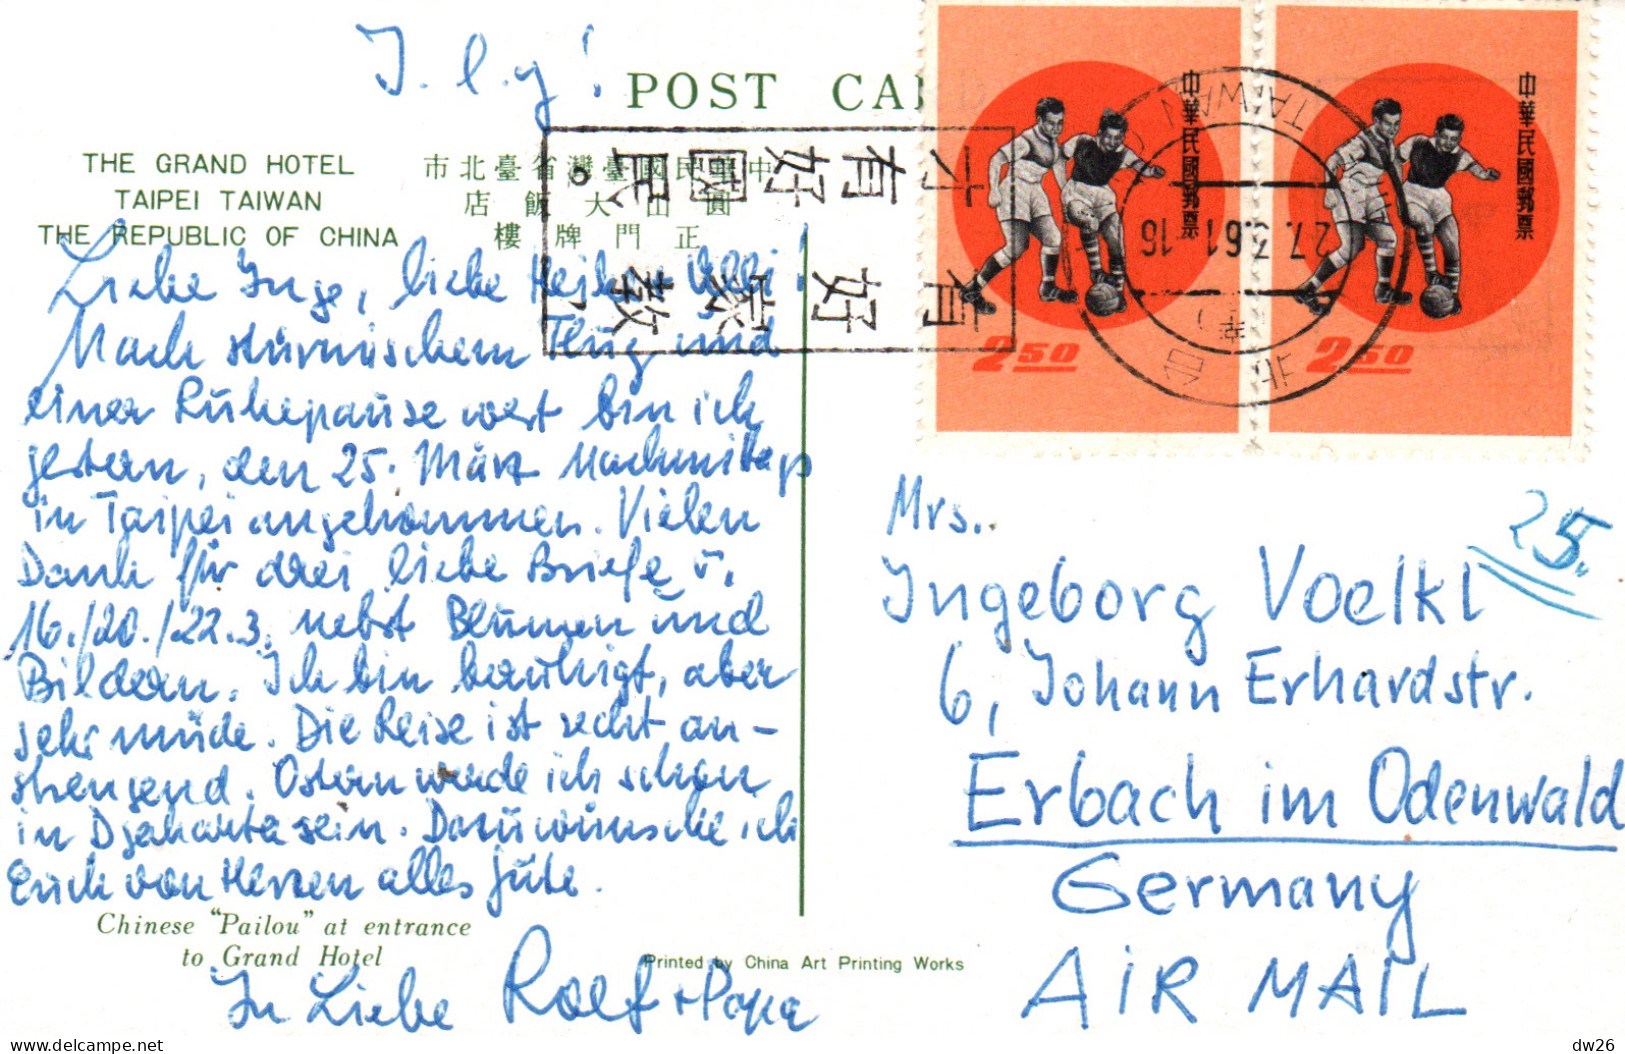 I. l. y!
POST CA
THE GRAND HOTEL
TAIPEI TAIWAN
THE REPUBLIC OF CHINA
市北臺省灣臺國民華中
店飯大山圓
樓牌門正
有好家教，
才有好國民。
中華民國郵票
2 50
中華民國郵票
2 50
TAIWAN
27. 3.61.16
台北
Liebe Inge, liebe Heike, Ulli!
Nach stürmischem Flug und
einer Ruhepause wert bin ich
gestern, den 25. März Nachmittags
in Taipei angekommen. Vielen
Dank für drei liebe Briefe v.
16./20./22.3. nebst Blumen und
Bildern. Ich bin beruhigt, aber
sehr müde. Die Reise ist recht an-
strengend. Ostern werde ich schon
in Djakarta sein. Dazu wünsche ich
Euch von Herzen alles Gute.
Chinese "Pailou" at entrance
to Grand Hotel
In Liebe Rolf + Papa
Printed by China Art Printing Works
25.
Mrs.
Ingeborg Voelkl
6, Johann Erhardstr.
Erbach im Odenwald
Germany
AIR MAIL
delcampe.net
dw26